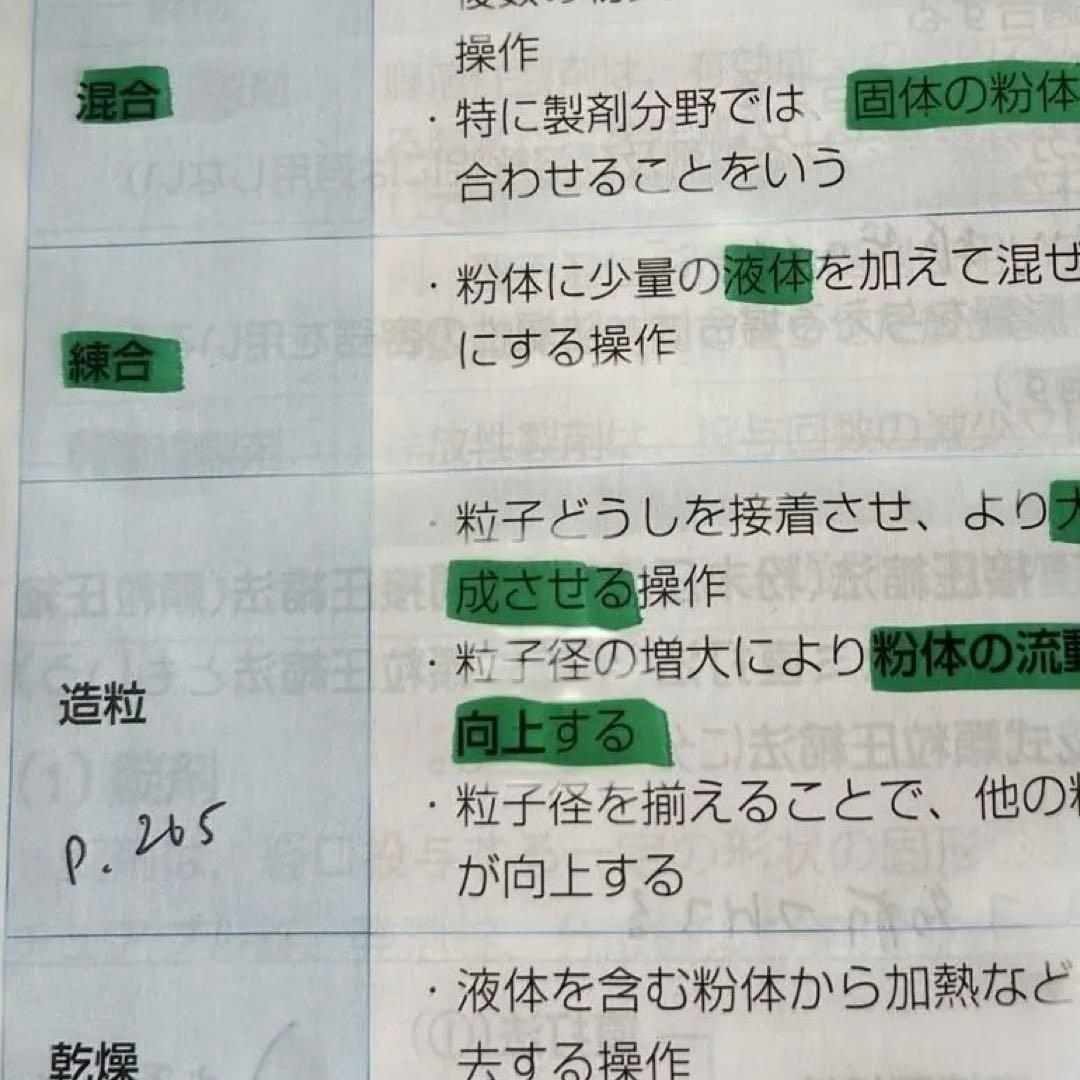 操作
混合
・特に製剤分野では、固体の粉体
合わせることをいう
・粉体に少量の液体を加えて混ぜ
にする操作
練合
・粒子どうしを接着させ、より
成させる操作
・粒子径の増大により粉体の流動
造粒
向上する
・粒子径を揃えることで、他の
p.265
が向上する
・液体を含む粉体から加熱など
乾燥
去する操作